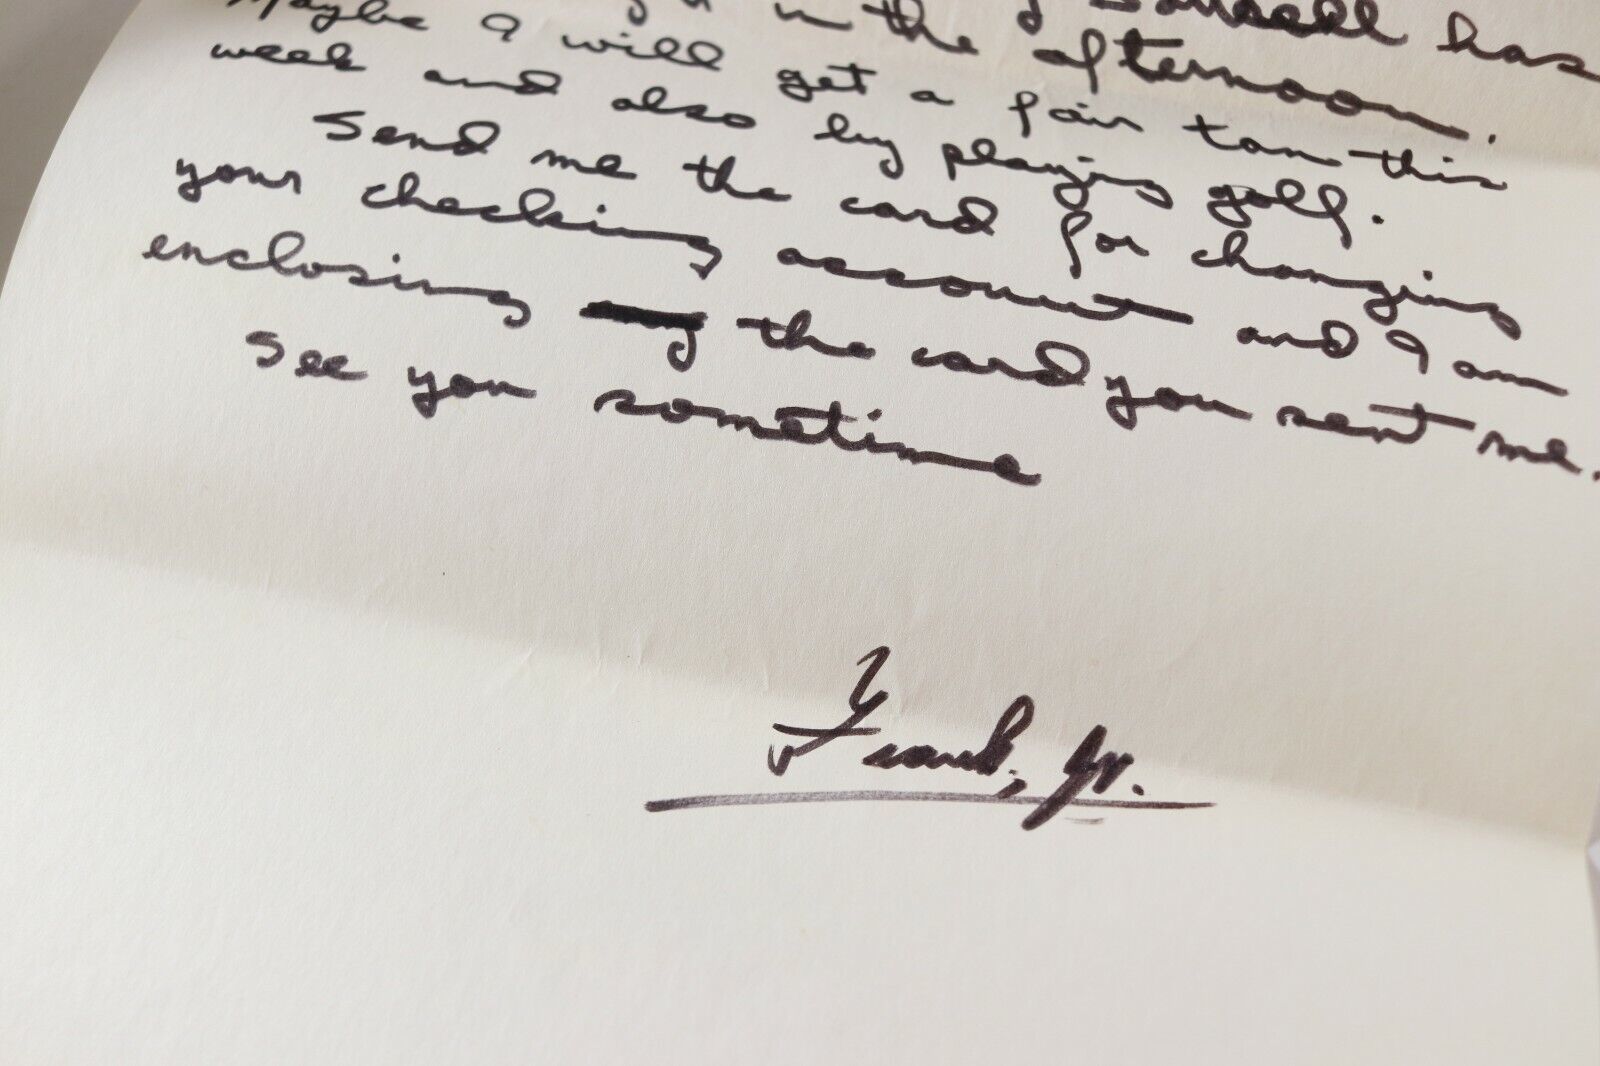 has
in the afternoon.
Maybe I will get a fair tan this
week and also by playing golf.
Send me the card for changing
your checking account and I am
enclosing the card you sent me.
See you sometime
Frank, Jr.